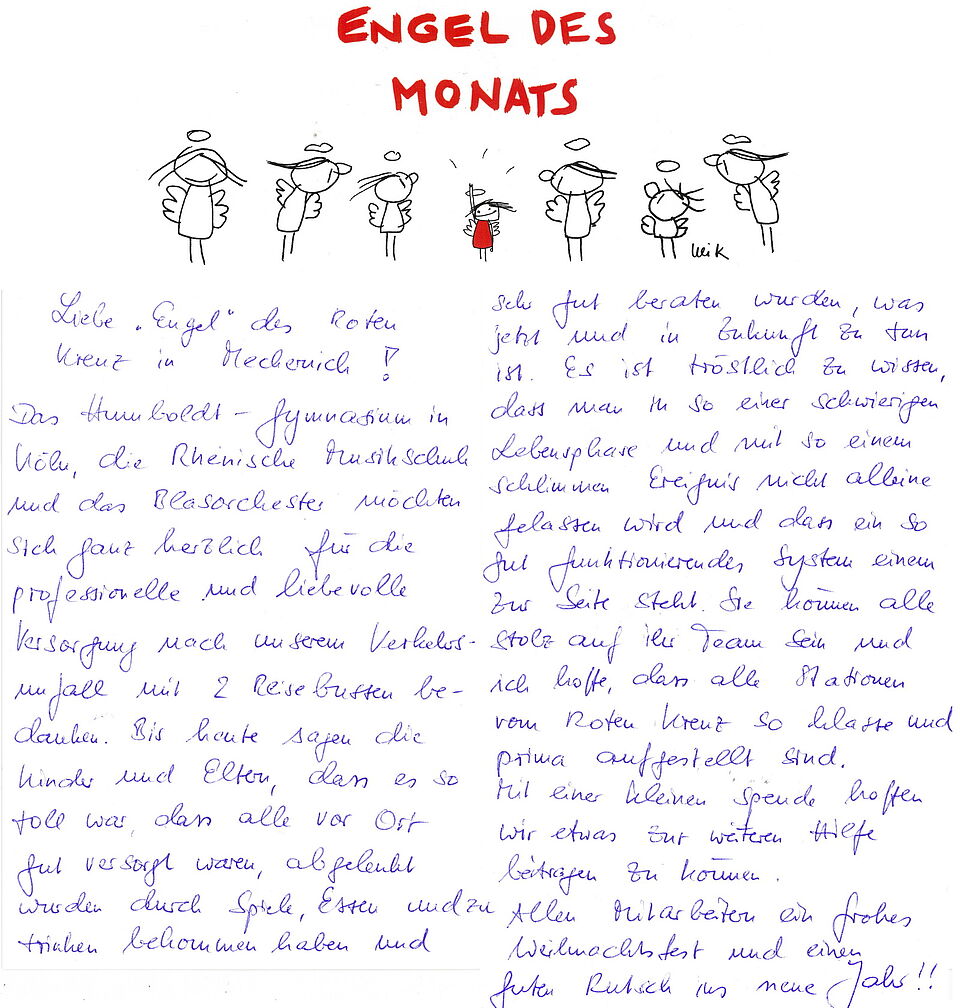 ENGEL DES
MONATS
Liebe „Engel" des Roten
Kreuz in Mechernich !
Das Humboldt-Gymnasium in
Köln, die Rheinische Musikschule
und das Blasorchester möchten
sich ganz herzlich für die
professionelle und liebevolle
Versorgung nach unserem Verkehrs-
unfall mit 2 Reisebussen be-
danken. Bis heute sagen die
Kinder und Eltern, dass es so
toll war, dass alle vor Ort
gut versorgt waren, abgelenkt
wurden durch Spiele, Essen und zu
trinken bekommen haben und
sehr gut beraten wurden, was
jetzt und in Zukunft zu tun
ist. Es ist tröstlich zu wissen,
dass man in so einer schwierigen
Lebensphase und mit so einem
schlimmen Ereignis nicht alleine
gelassen wird und dass ein so
gut funktionierendes System einem
zur Seite steht. Sie können alle
stolz auf ihr Team sein und
ich hoffe, dass alle Stationen
vom Roten Kreuz so klasse und
prima aufgestellt sind.
Mit einer kleinen Spende hoffen
wir etwas zur weiteren Hilfe
beitragen zu können.
Allen Mitarbeitern ein frohes
Weihnachtsfest und einen
guten Rutsch ins neue Jahr!!